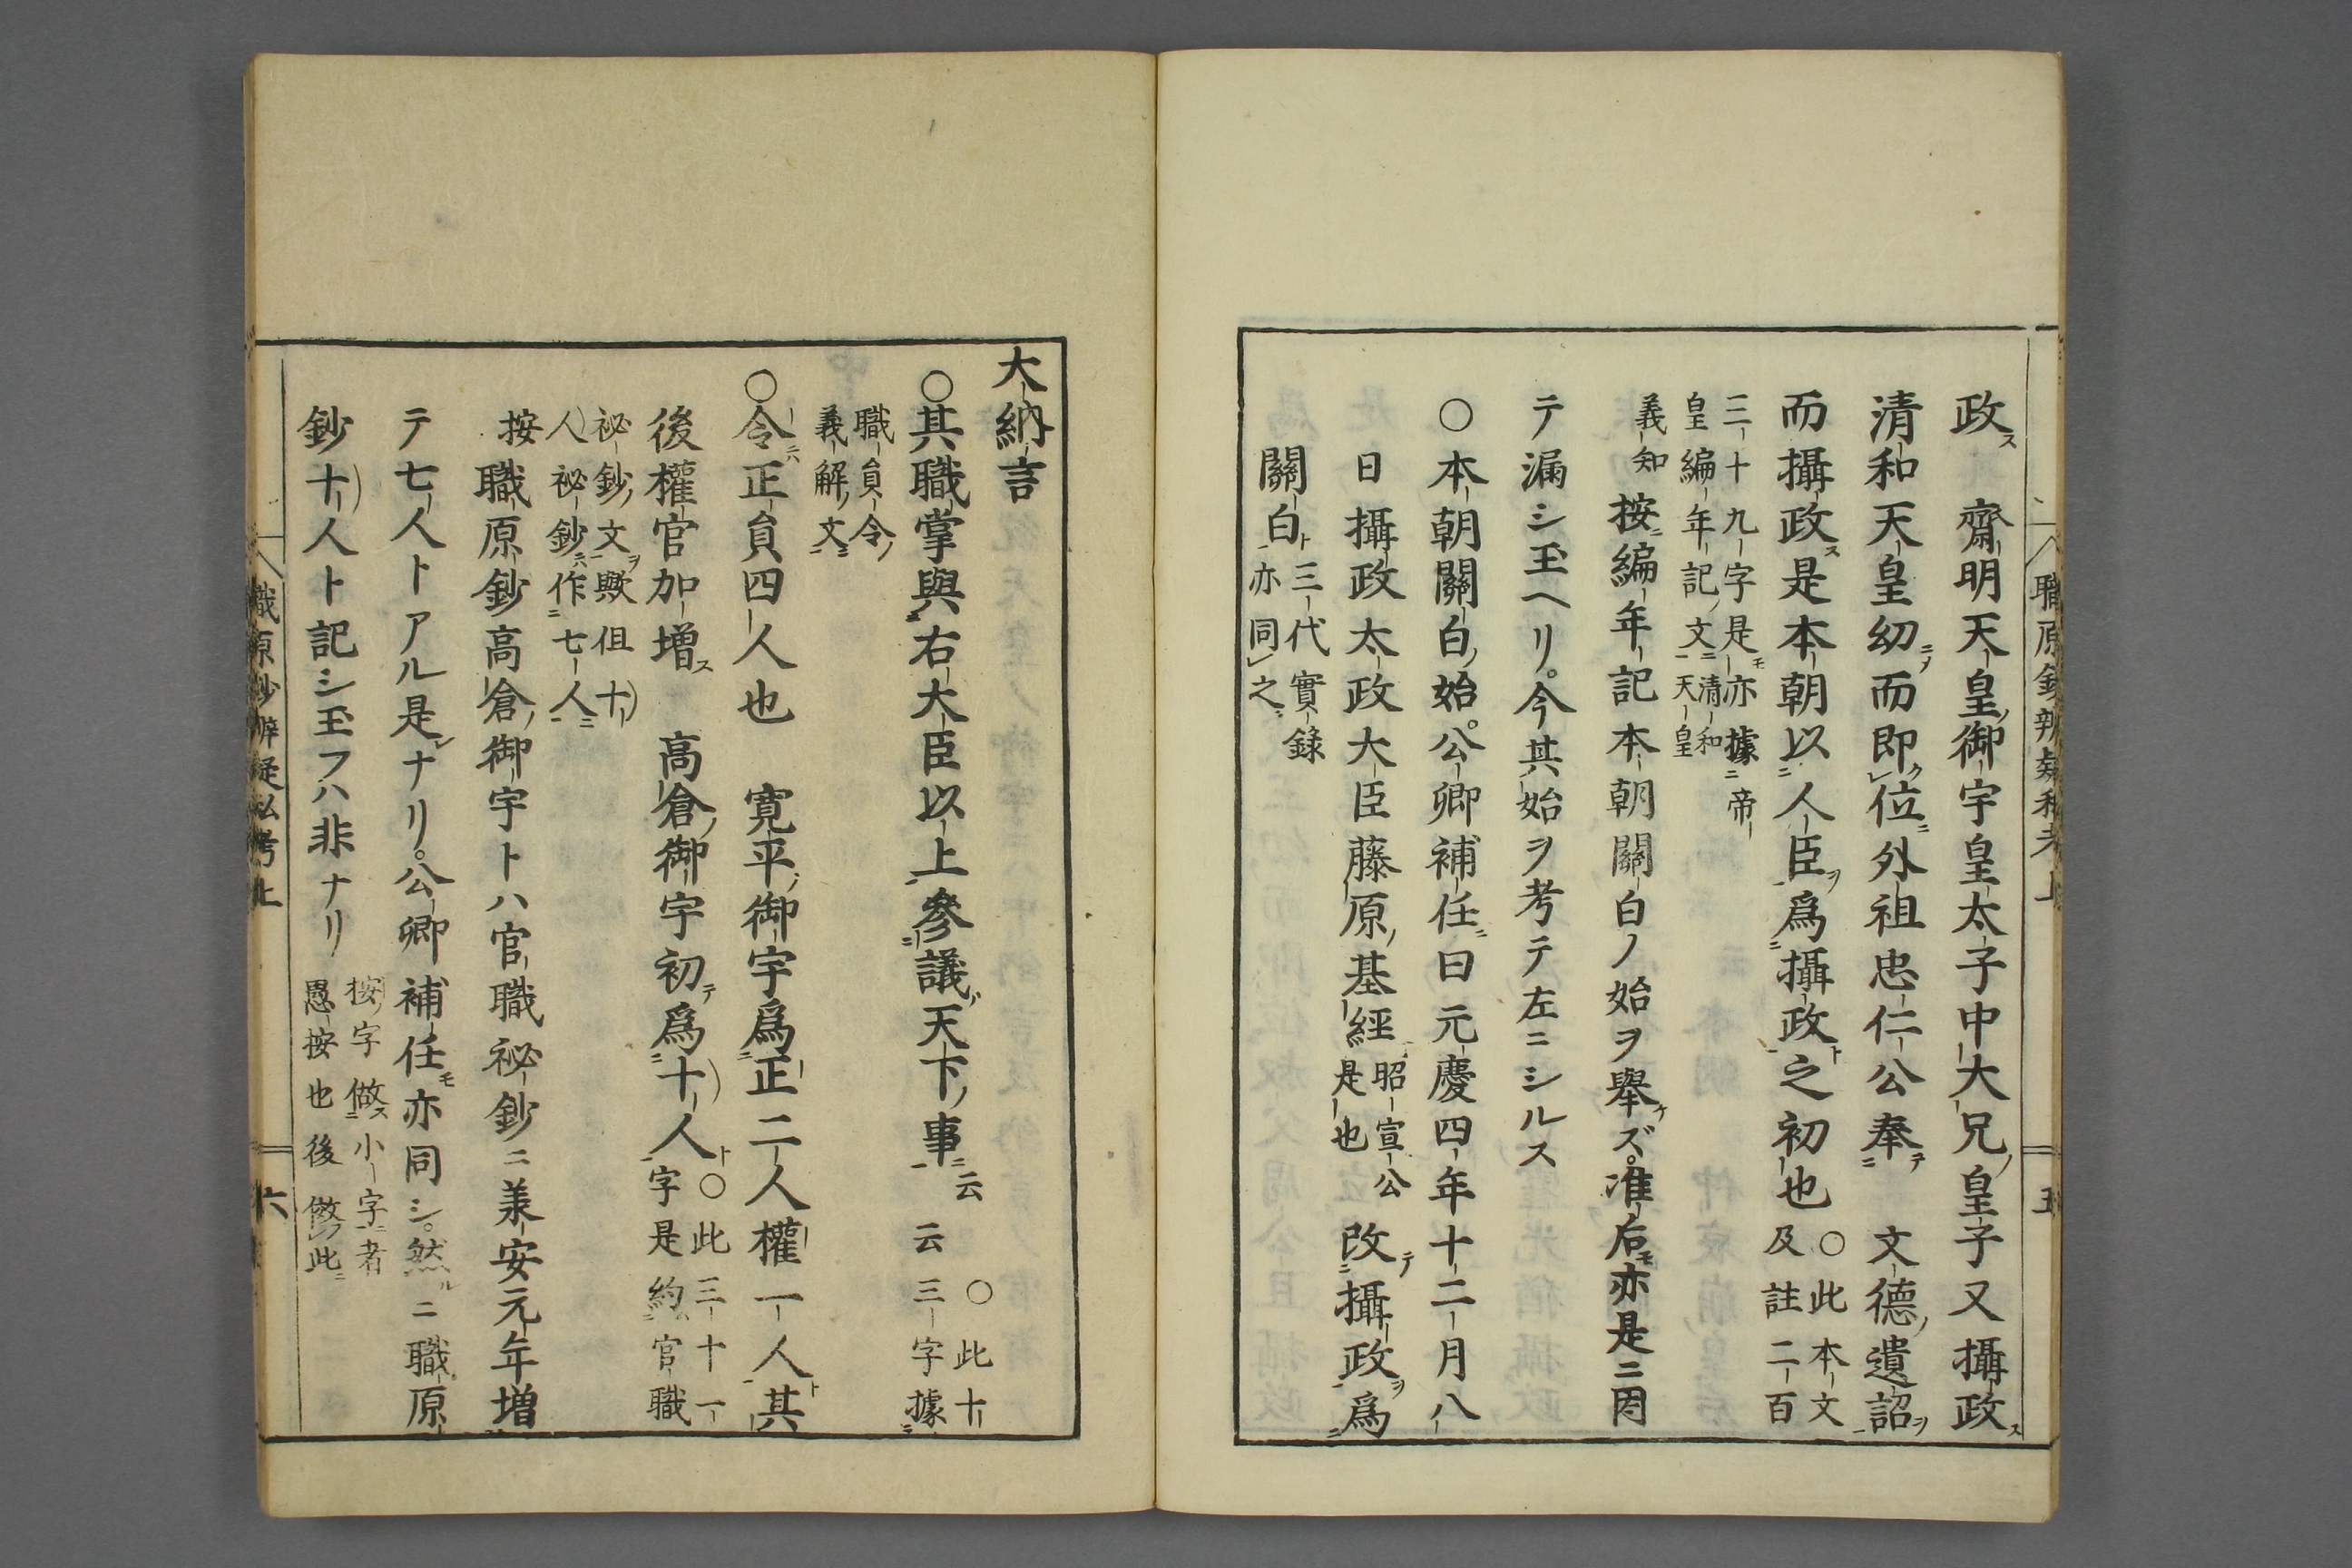 職原鈔辨疑私考上 五
政ス 齋明天皇ノ御宇皇太子中大兄ノ皇子又攝政ス
清和天皇幼ニノ而即ク位ニ外祖忠仁公奉テ 文德ノ遺詔ヲ
而攝政ス是本朝以人臣ヲ爲攝政ト之初也 〇此本文及註二百
三十九字是モ亦據帝皇編年記ノ文 清和天皇
義知 按編年記本朝關白ノ始ヲ舉ズ。准后モ亦是ニ因
テ漏シ玉ヘリ。今其始ヲ考テ左ニシルス
〇本朝關白ノ始。公卿補任曰元慶四年十二月八
日攝政太政大臣藤原ノ基經 昭宣公是也 改テ攝政ヲ爲
關白ト 三代實錄亦同之
大納言
〇其職掌與右大臣以上參議ノ天下ノ事云云 〇此十三字據
職員令ノ義解ノ文
〇令ニハ正員四人也 寬平ノ御宇爲正二人權一人ト其
後權官加増ス 高倉ノ御宇初テ爲十人ト 〇此三十一字是約官職
祕鈔ノ文ヲ歟但十人祕鈔ニハ作七人
按職原鈔高倉ノ御宇トハ官職祕鈔ニ兼安元年増
テ七人トアル是ナリ。公卿補任モ亦同シ。然ルニ職原
鈔十人ト記シ玉フハ非ナリ 按ノ字做ス小字者愚按也後倣此
職原鈔辨疑私考上 六